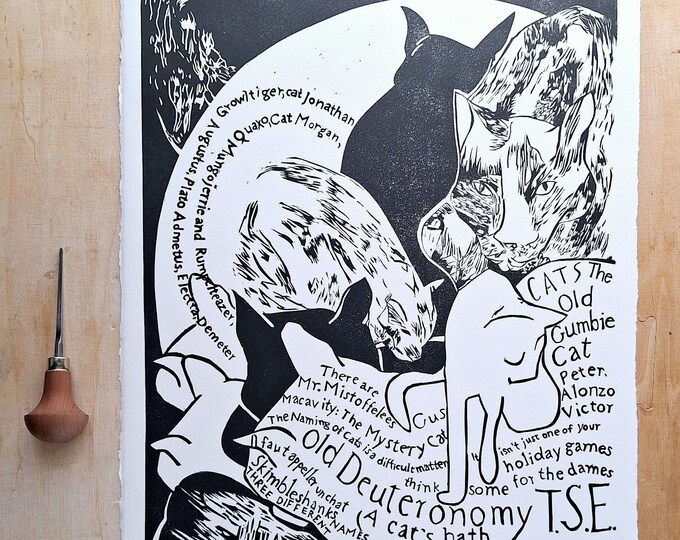 Growltiger, cat Jonathan
Quaxo, Cat Morgan,
Mungojerrie and Rumpelteazer,
Augustus, Plato Admetus, Electra Demeter
CATS The
Old
Gumbie
Cat
Peter,
Alonzo
Victor
There are
Mr. Mistoffelees
Gus
Macavity: The Mystery Cat
The Naming of Cats is a difficult matter
It isn't just one of your
holiday games
think some for the dames
Old Deuteronomy
faut appeller un chat
Skimbleshanks
THREE DIFFERENT NAMES
(A cat's bath
T.S.E.